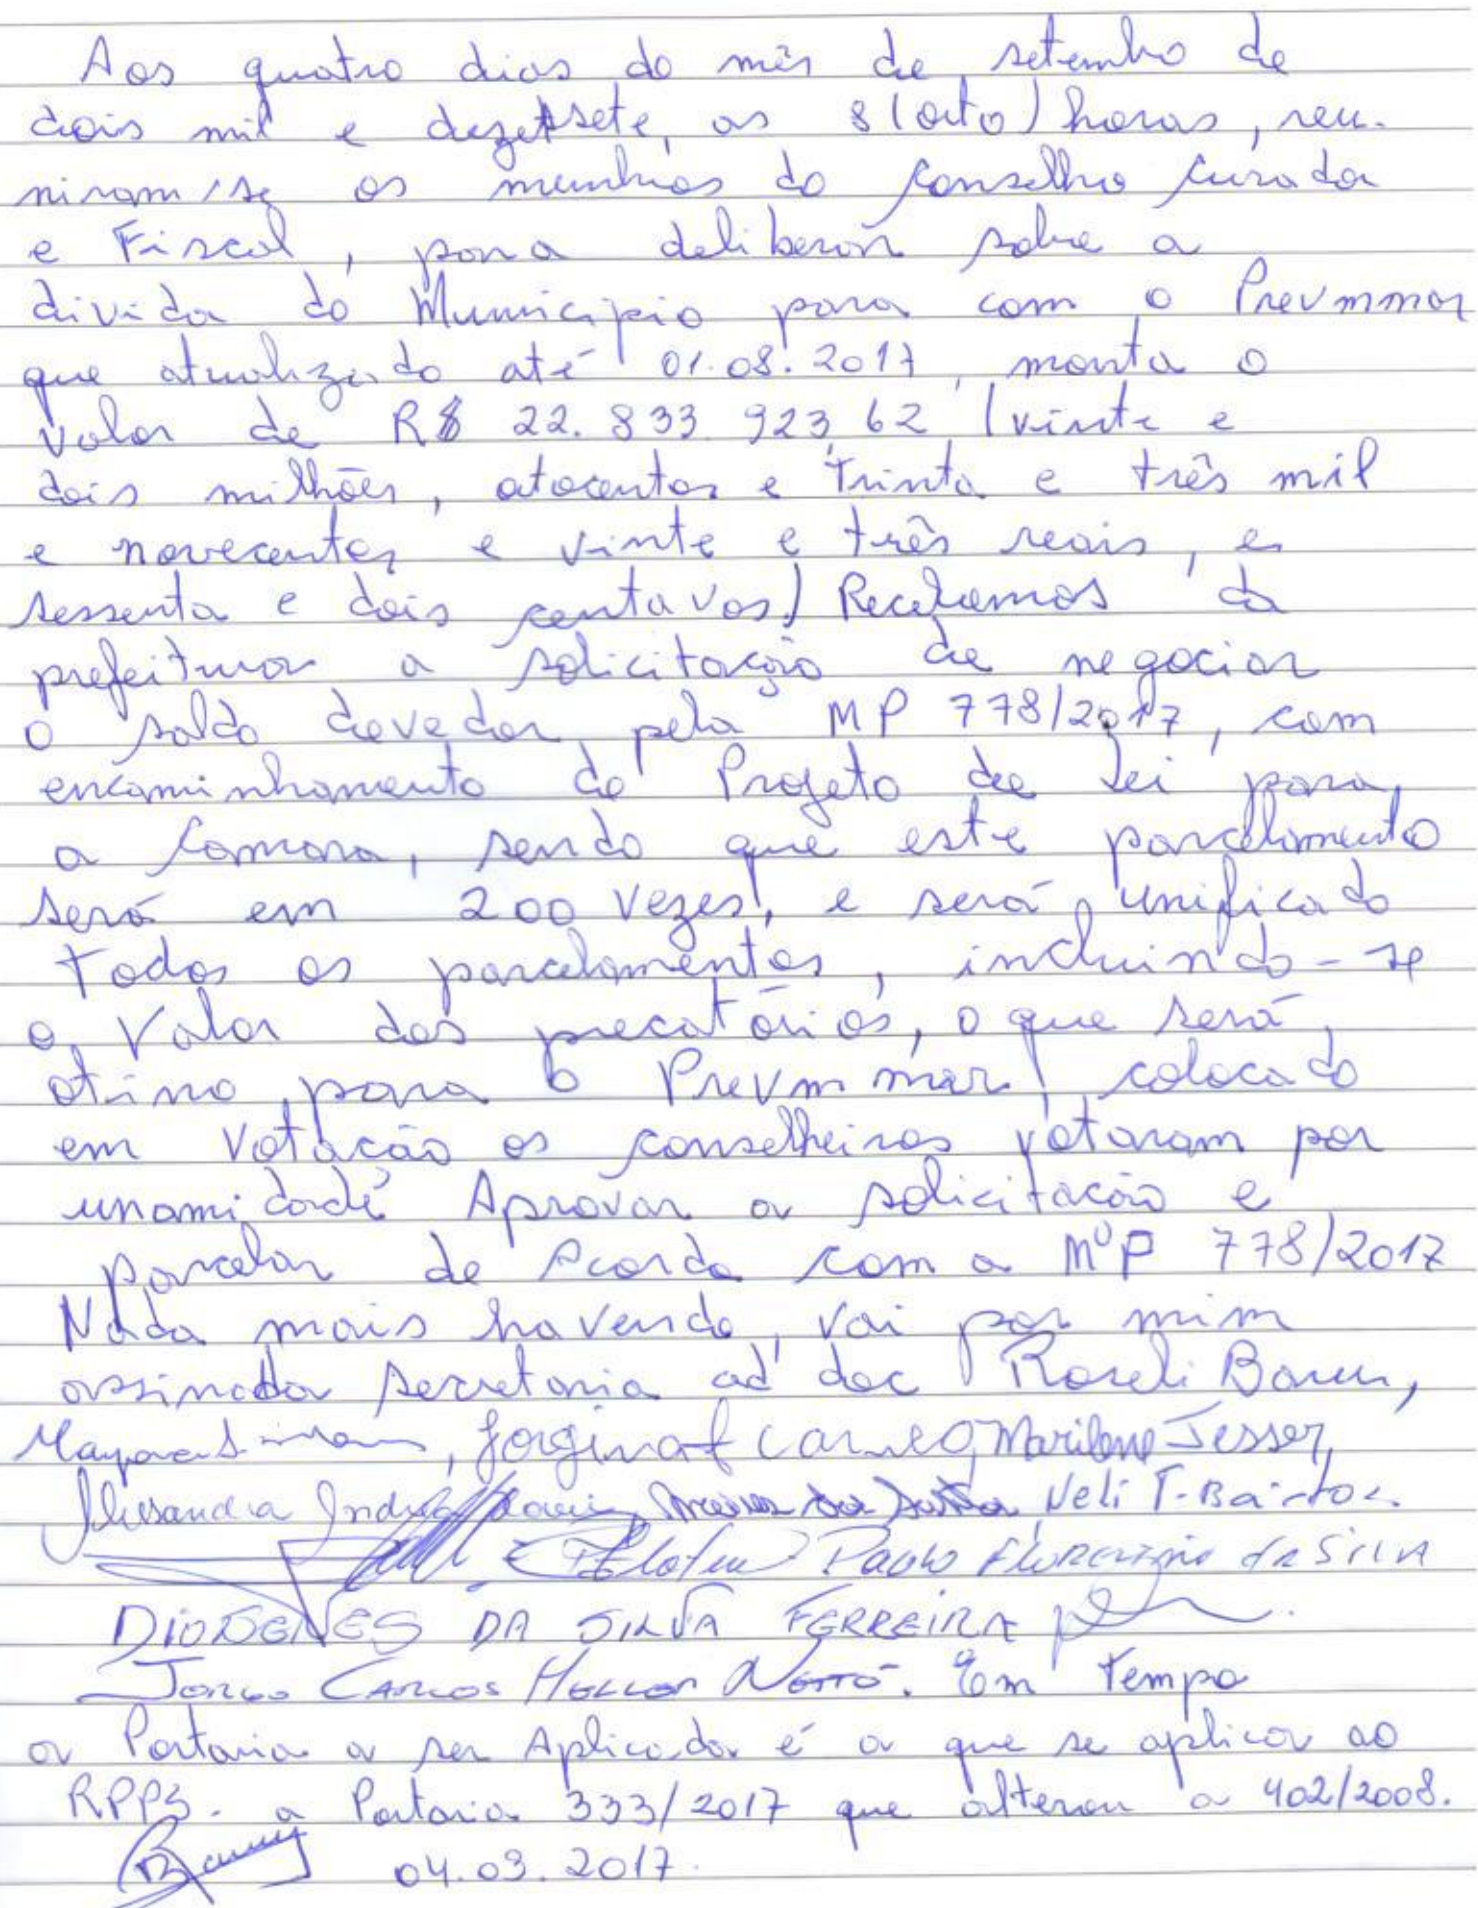 Aos quatro dias do mês de setembro de
dois mil e dezessete, as 8 (oito) horas, reu-
niram/se os membros do Conselho Curador
e Fiscal, para deliberar sobre a
divida do Municipio para com o Prevmmar
que atualizado até 01.08.2017, monta o
valor de R$ 22.833.923,62 (vinte e
dois milhões, oitocentos e trinta e três mil
e novecentos e vinte e três reais, e
sessenta e dois centavos) Recebemos da
prefeitura a solicitação de negociar
o saldo devedor pela MP 778/2017, com
encaminhamento do Projeto de Lei para
a Camara, sendo que este parcelamento
será em 200 vezes, e será unificado
todos os parcelamentos, incluindo-se
o valor dos precatórios, o que será
otimo para o Prevmmar, colocado
em votação os conselheiros votaram por
unamidade Aprovar a solicitação e
parcelar de Acordo com a MP 778/2017
Nada mais havendo, vai por mim
assinada secretaria ad doc Roseli
, Marilene Jesser,
Neli T.
Paulo Florenzio da Silva
DIOGENES DA SILVA FERREIRA
JORGE CARLOS NETTO. Em Tempo
a Portaria a ser Aplicada é a que se aplica ao
RPPS. a Portaria 333/2017 que alterou a 402/2008.
04.03.2017.